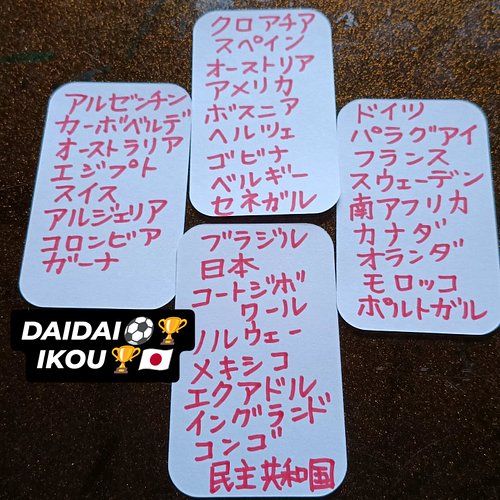 アルゼンチン
カーボベルデ
オーストラリア
エジプト
スイス
アルジェリア
コロンビア
ガーナ
クロアチア
スペイン
オーストリア
アメリカ
ボスニア
ヘルツェ
ゴビナ
ベルギー
セネガル
ドイツ
パラグアイ
フランス
スウェーデン
南アフリカ
カナダ
オランダ
モロッコ
ポルトガル
ブラジル
日本
コートジボ
ワール
ノルウェー
メキシコ
エクアドル
イングランド
コンゴ
民主共和国
DAIDAI⚽🏆
IKOU🏆🇯🇵